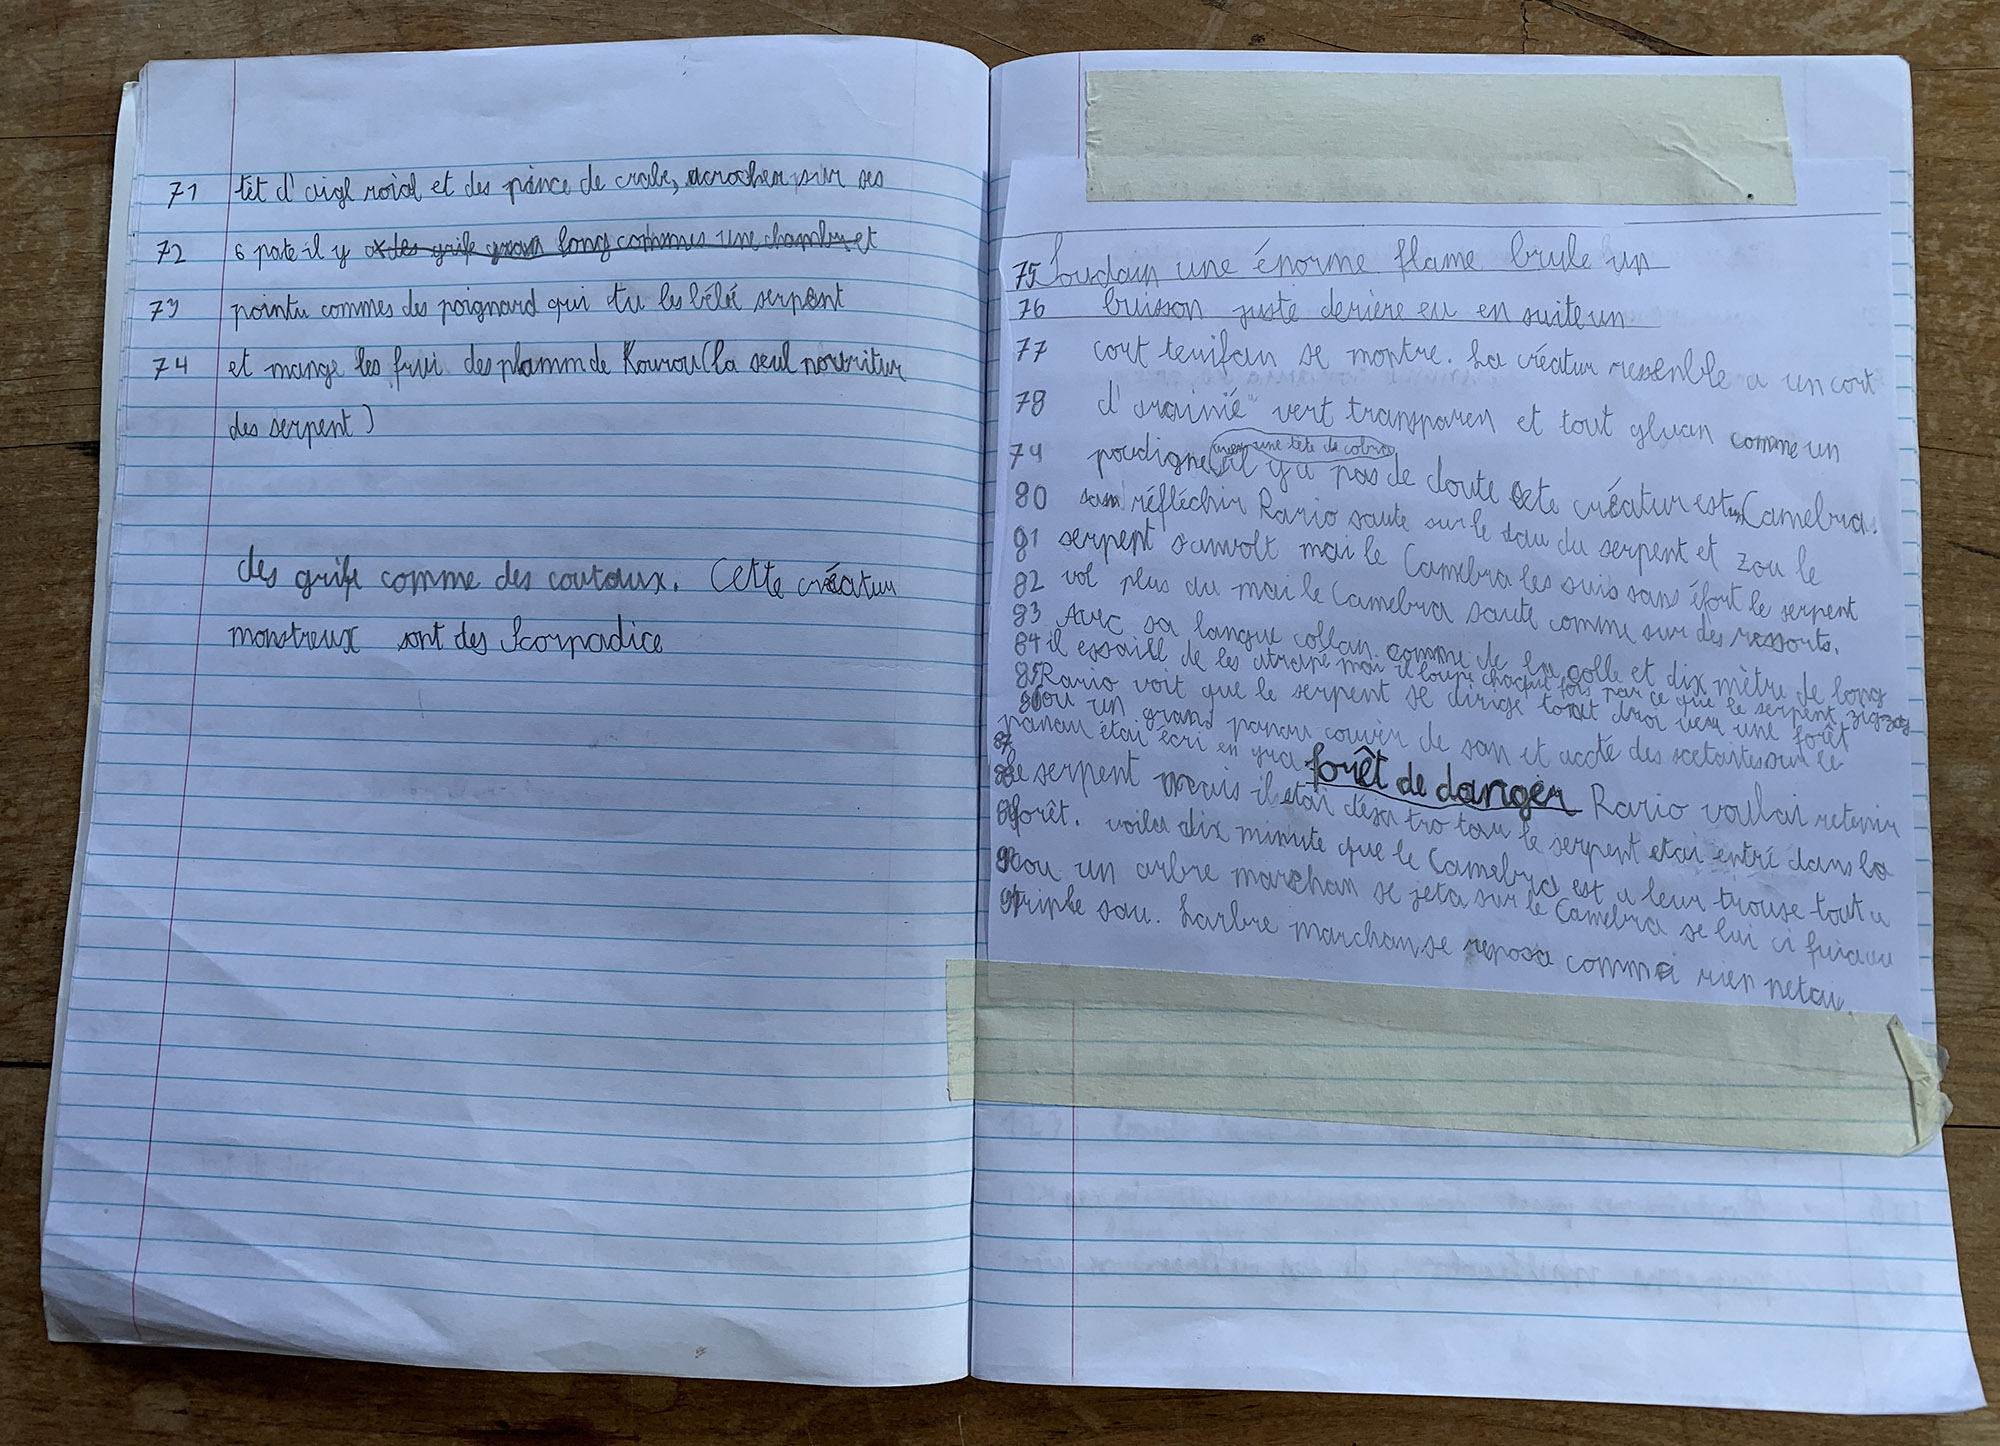 71 têt d'aigl roial et des pince de crabe, acrocher sur ses
72 6 pate il y a des grife long commes une chambre et
73 pointu commes des poignard qui tu les bébé serpent
74 et mange les frui des plamm de Kourou (la seul nouritur
des serpent)
des grife comme des coutaux. Cette créatur
monstreux sont des Scorpadice
75 Soudain une énorme flame brule un
76 buisson juste derière eu en suite un
77 cort terifan se montre. La créatur resenble a un cort
78 d'arainié vert transparen et tout gluan comme un
74 poudigne avec une tete de cobra il y a pas de doute cete créatur est un Camebra.
80 san réfléchir Rario saute sur le dau du serpent et zou le
81 serpent sanvolt mai le Camebra les suis sans éfort le serpent
82 vol plus au mai le Camebra saute comme sur des ressorts.
83 Avec sa langue collan comme de la colle et dix mètre de long
84 il essaill de les atrapé mai il loupe chaque fois par ce que le serpent zigzag
85 Rario voit que le serpent se dirige tout droi vers une forêt
86 ou un grand panau couvèr de san et accoté des scetaites sur le
panau étai écri en gra forêt de danger Rario voulai retenir
87
88 le serpent mais il etai déja tro tau le serpent etai entré dans la
89 forêt. voila dix minute que le Camebra est a leur trouse tout a
90 cou un arbre marchan se jeta sur le Camebra se lui ci fuiau
91 triple sau. Larbre marchan se reposa comme rien netai.